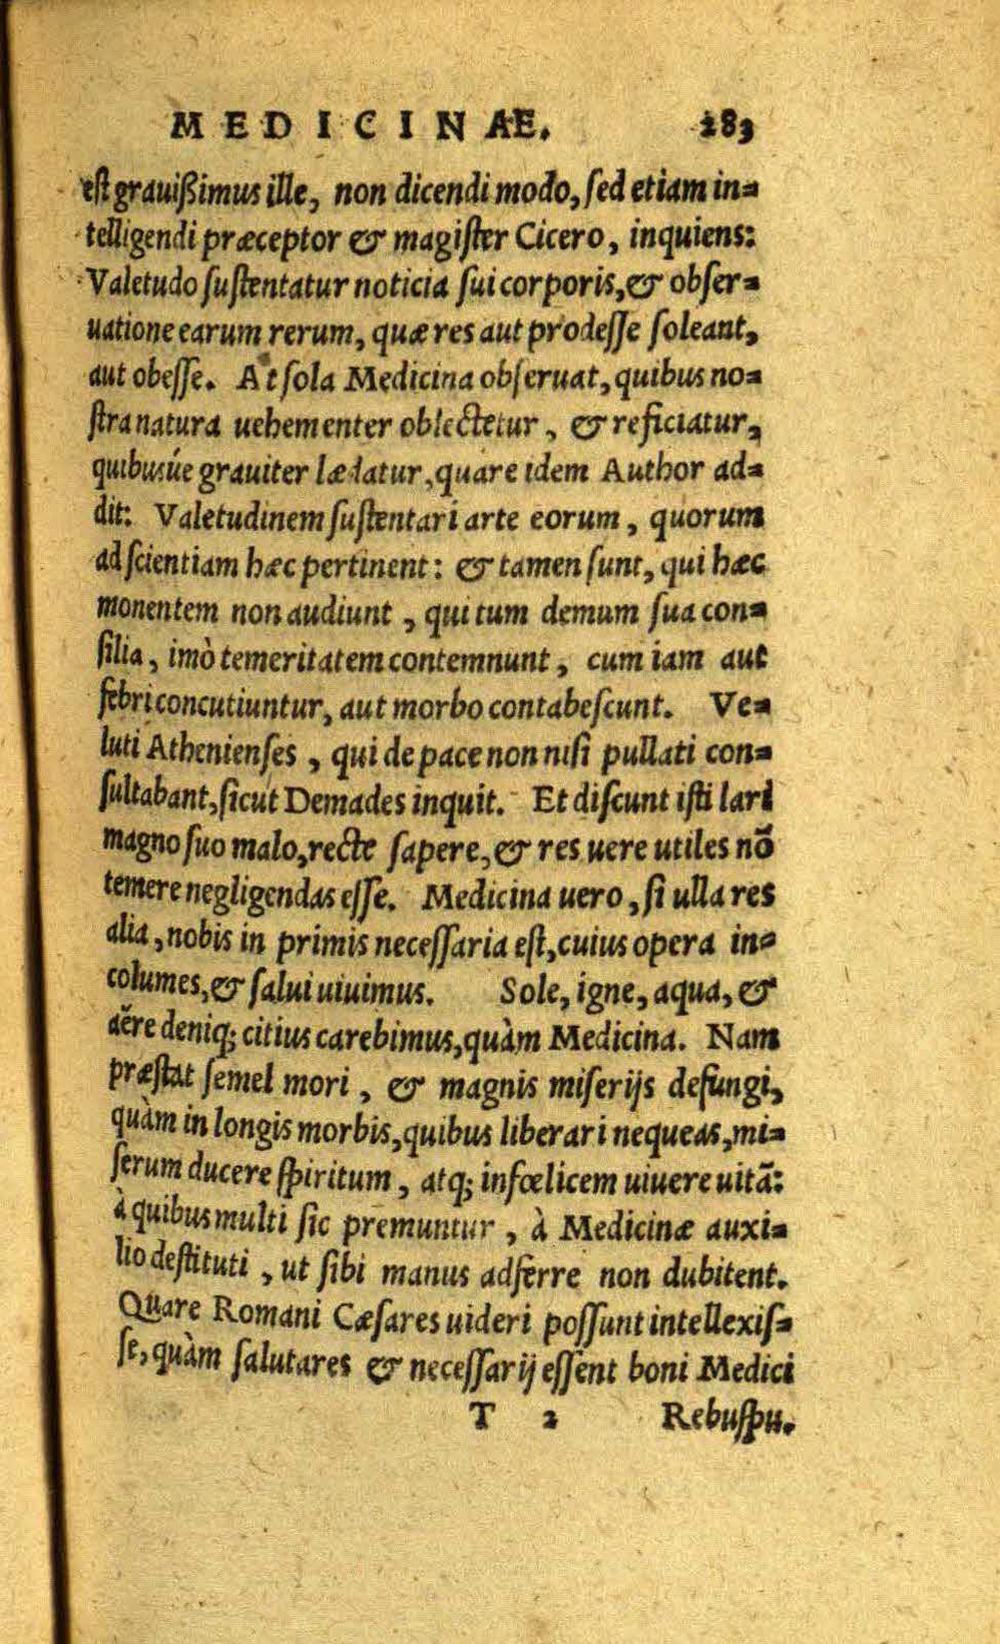 MEDICINAE. 283
est grauißimus ille, non dicendi modo, sed etiam in=
telligendi præceptor & magister Cicero, inquiens:
Valetudo sustentatur noticia sui corporis, & obser=
uatione earum rerum, quæ res aut prodesse soleant,
aut obesse. At sola Medicina obseruat, quibus no=
stra natura uehementer oblectetur, & reficiatur,
quibusúe grauiter lædatur, quare idem Author ad=
dit: Valetudinem sustentari arte eorum, quorum
ad scientiam hæc pertinent: & tamen sunt, qui hæc
monentem non audiunt, qui tum demum sua con=
silia, imò temeritatem contemnunt, cum iam aut
febri concutiuntur, aut morbo contabescunt. Ve=
luti Athenienses, qui de pace non nisi pullati con=
sultabant, sicut Demades inquit. Et discunt isti lari
magno suo malo, recte sapere, & res uere utiles nõ
temere negligendas esse. Medicina uero, si ulla res
alia, nobis in primis necessaria est, cuius opera in=
columes, & salui uiuimus. Sole, igne, aqua, &
aëre deniq; citius carebimus, quàm Medicina. Nam
præstat semel mori, & magnis miserijs defungi,
quàm in longis morbis, quibus liberari nequeas, mi=
serum ducere spiritum, atq; infœlicem uiuere uitã:
à quibus multi sic premuntur, à Medicinæ auxi=
lio destituti, ut sibi manus adferre non dubitent.
Quare Romani Cæsares uideri possunt intellexis=
se, quàm salutares & necessarij essent boni Medici
T 2 Rebuspu.